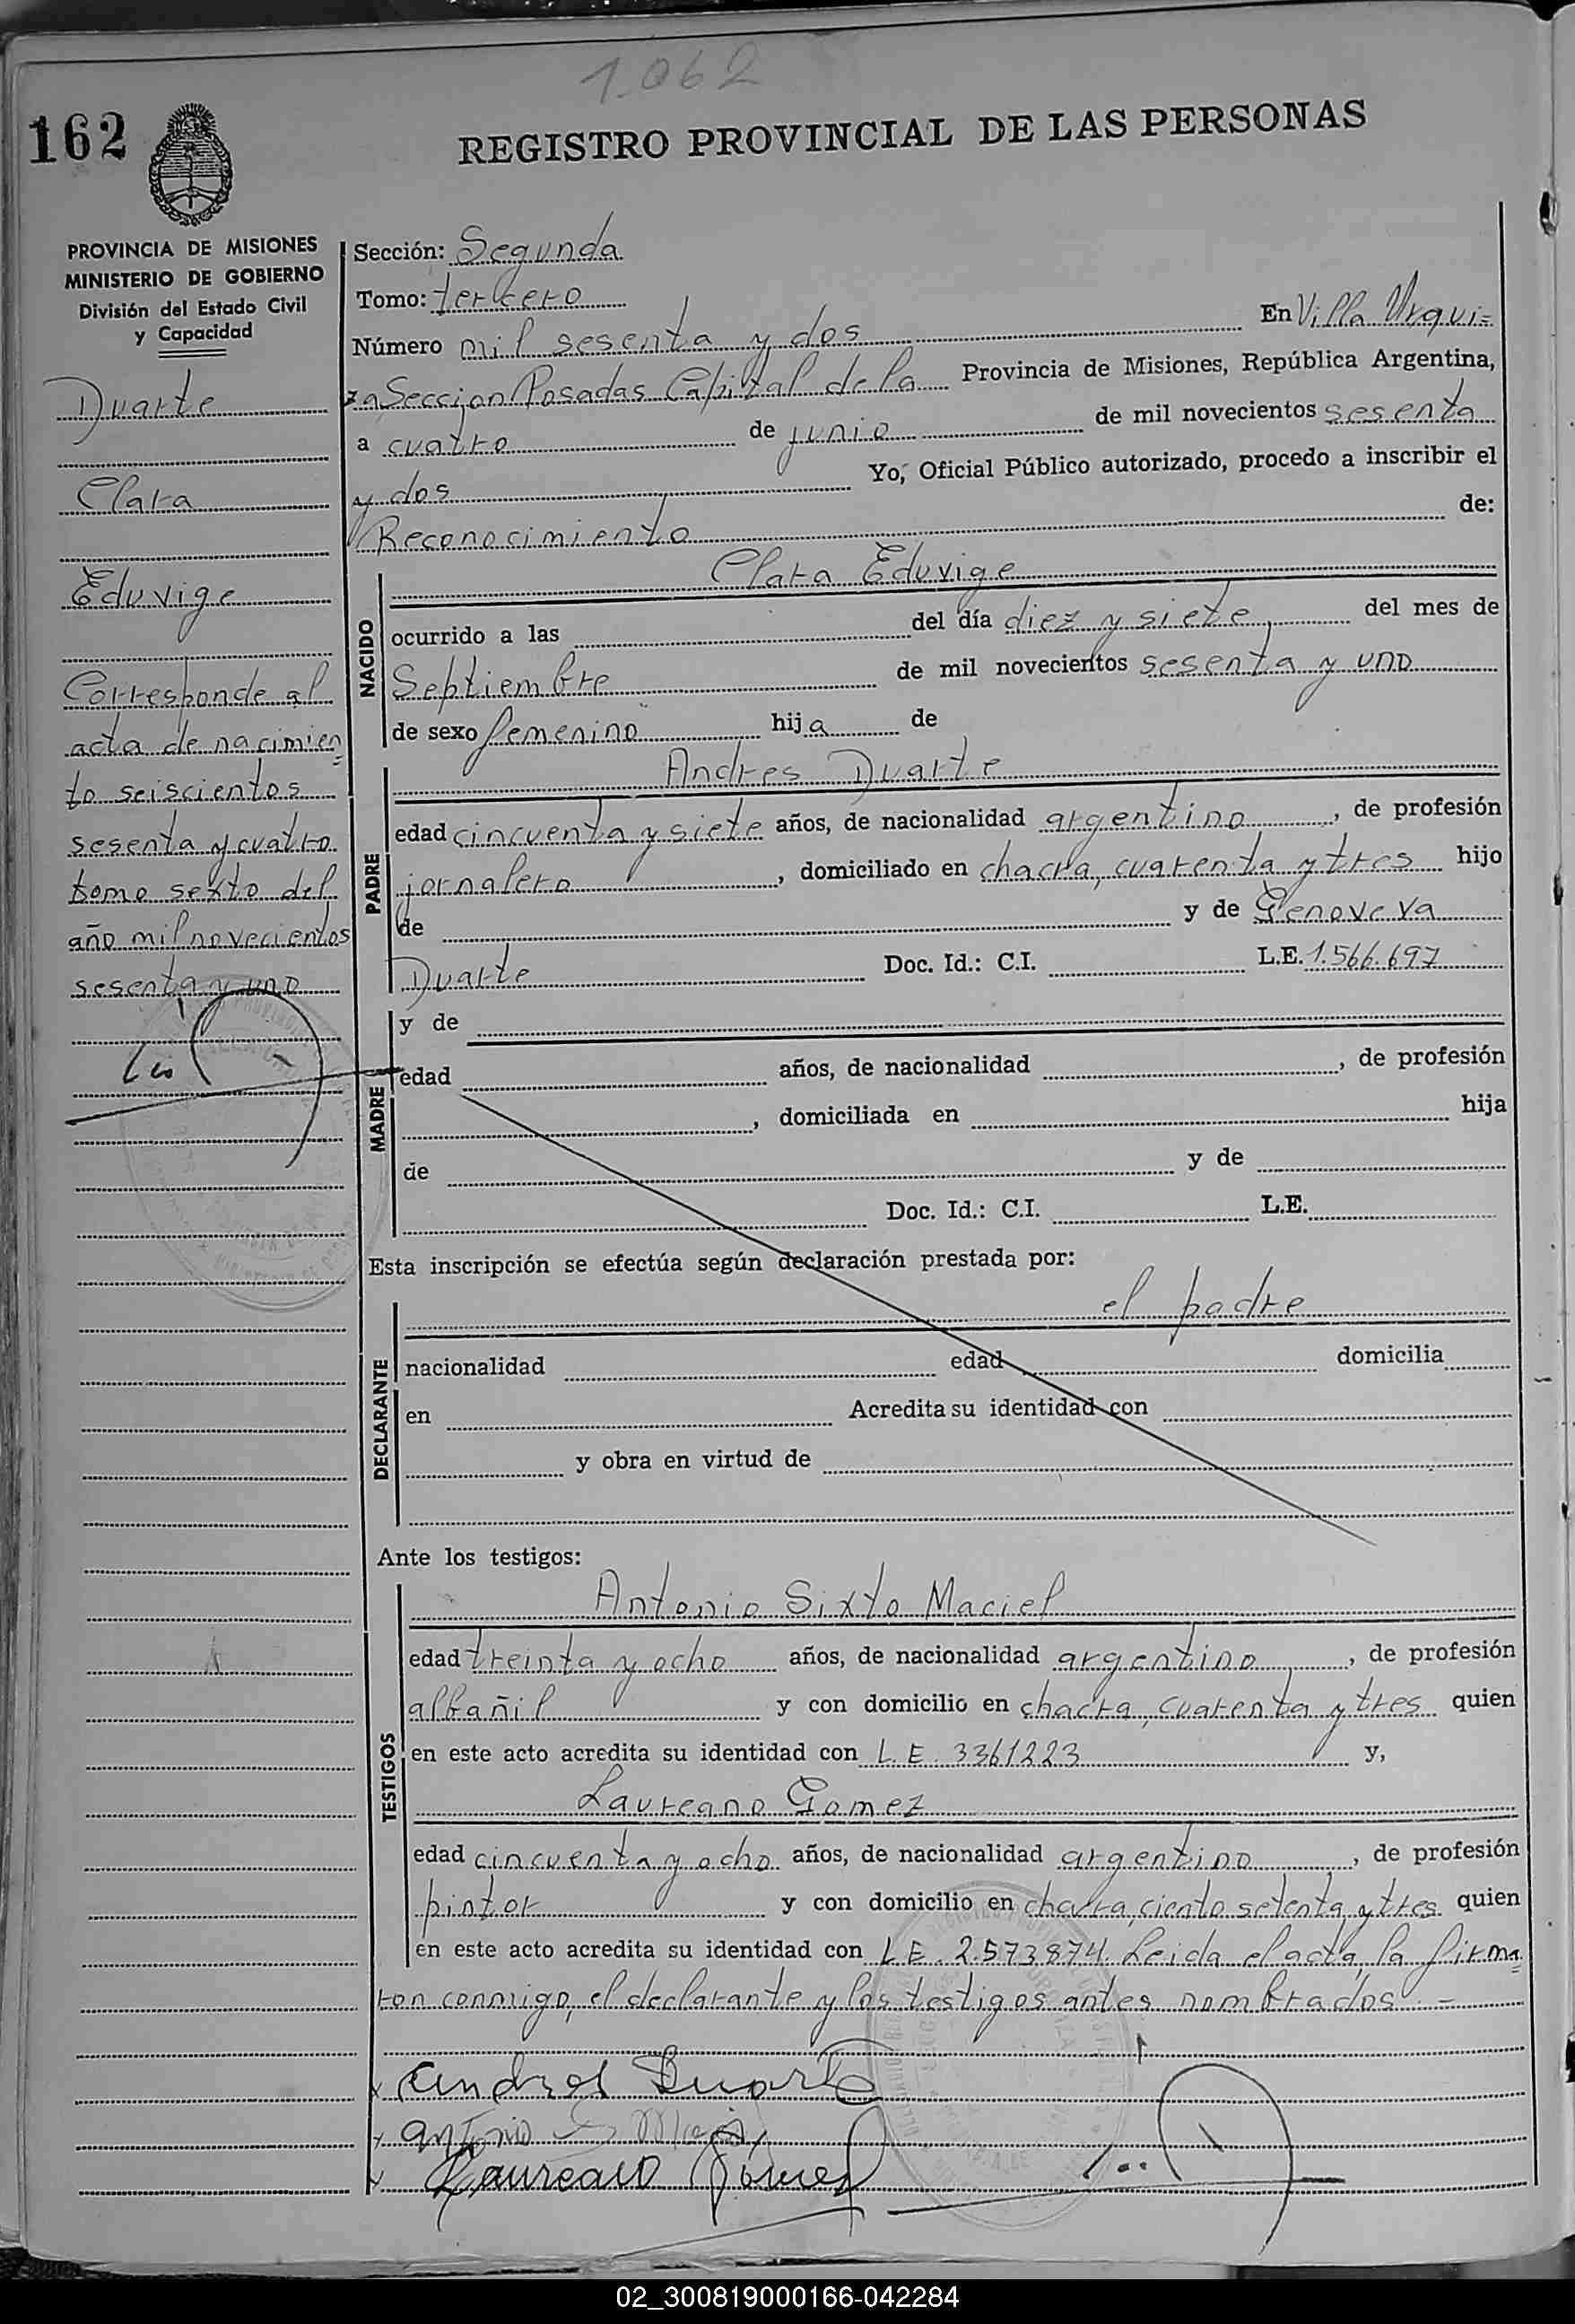 1.062
162
REGISTRO PROVINCIAL DE LAS PERSONAS
PROVINCIA DE MISIONES
MINISTERIO DE GOBIERNO
División del Estado Civil
y Capacidad
Duarte
Clara
Eduvige
Corresponde al
acta de nacimien=
to seiscientos
sesenta y cuatro
tomo sexto del
año mil novecientos
sesenta y uno
Sección: Segunda
Tomo: tercero
Número mil sesenta y dos En Villa Urqui=
za Seccion Posadas Capital de la Provincia de Misiones, República Argentina,
a cuatro de junio de mil novecientos sesenta
y dos Yo, Oficial Público autorizado, procedo a inscribir el
Reconocimiento de:
NACIDO
Clara Eduvige
ocurrido a las del día diez y siete del mes de
Septiembre de mil novecientos sesenta y uno
de sexo femenino hija de
PADRE
Andres Duarte
edad cincuenta y siete años, de nacionalidad argentino, de profesión
jornalero, domiciliado en chacra, cuarenta y tres hijo
de y de Genoveva
Duarte Doc. Id.: C.I. L.E. 1.566.697
MADRE
y de
edad años, de nacionalidad , de profesión
, domiciliada en hija
de y de
Doc. Id.: C.I. L.E.
Esta inscripción se efectúa según declaración prestada por:
DECLARANTE
el padre
nacionalidad edad domicilia
en Acredita su identidad con
y obra en virtud de
Ante los testigos:
TESTIGOS
Antonio Sixto Maciel
edad treinta y ocho años, de nacionalidad argentino, de profesión
albañil y con domicilio en chacra, cuarenta y tres quien
en este acto acredita su identidad con L.E. 3361223 y,
Laureano Gomez
edad cincuenta y ocho años, de nacionalidad argentino, de profesión
pintor y con domicilio en chacra, ciento setenta y tres quien
en este acto acredita su identidad con L.E. 2.573.874. Leida el acta, la firma=
ron conmigo, el declarante y los testigos antes nombrados.-
x Andres Duarte
x Antonio S Maciel
x Laureano Gómez
02_300819000166-042284